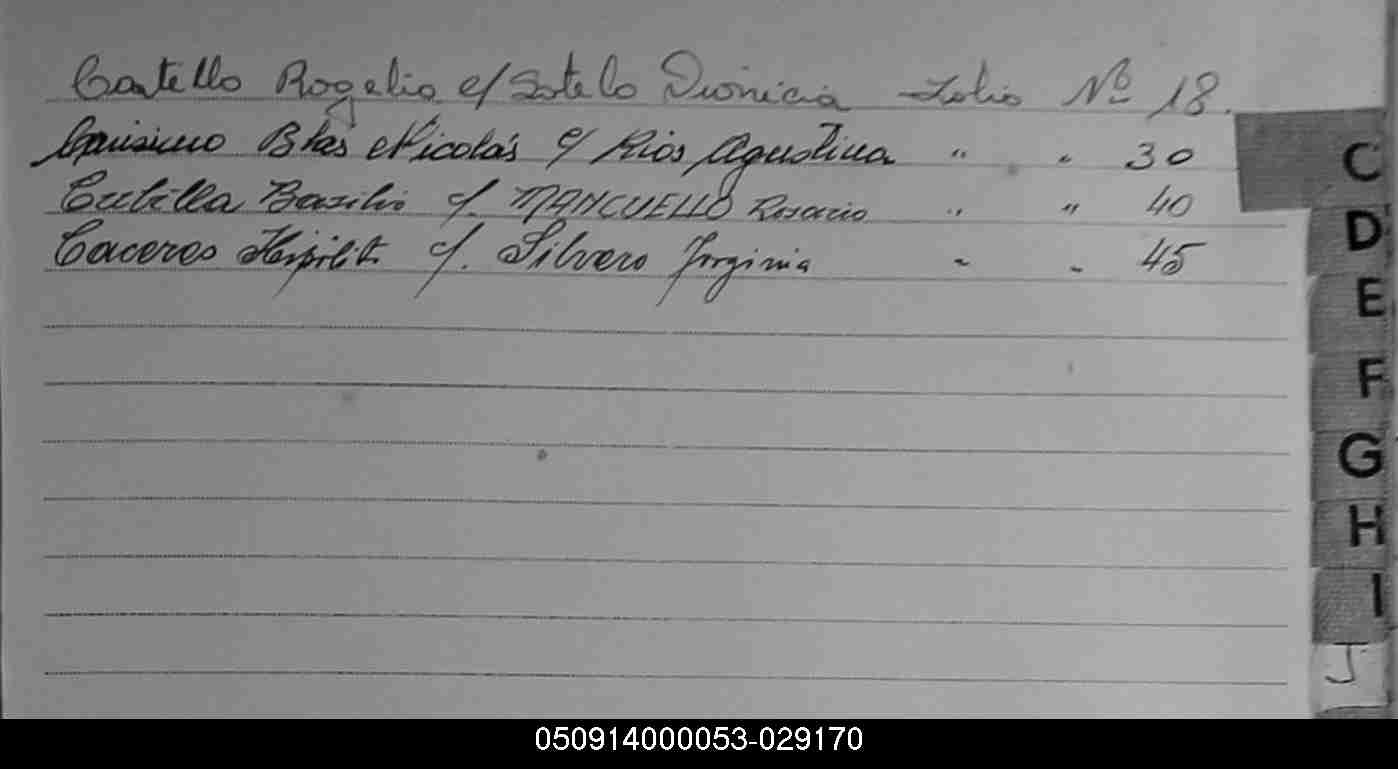 Castello Rogelio c/ Sotelo Dionicia Folio Nº 18.
Blas Nicolás c/ Rios Agustina " " 30
Cubilla Basilio c/. MANCUELLO Rosario " " 40
Caceres Hipolito c/. Silvero Virginia " " 45
C
D
E
F
G
H
I
J
050914000053-029170